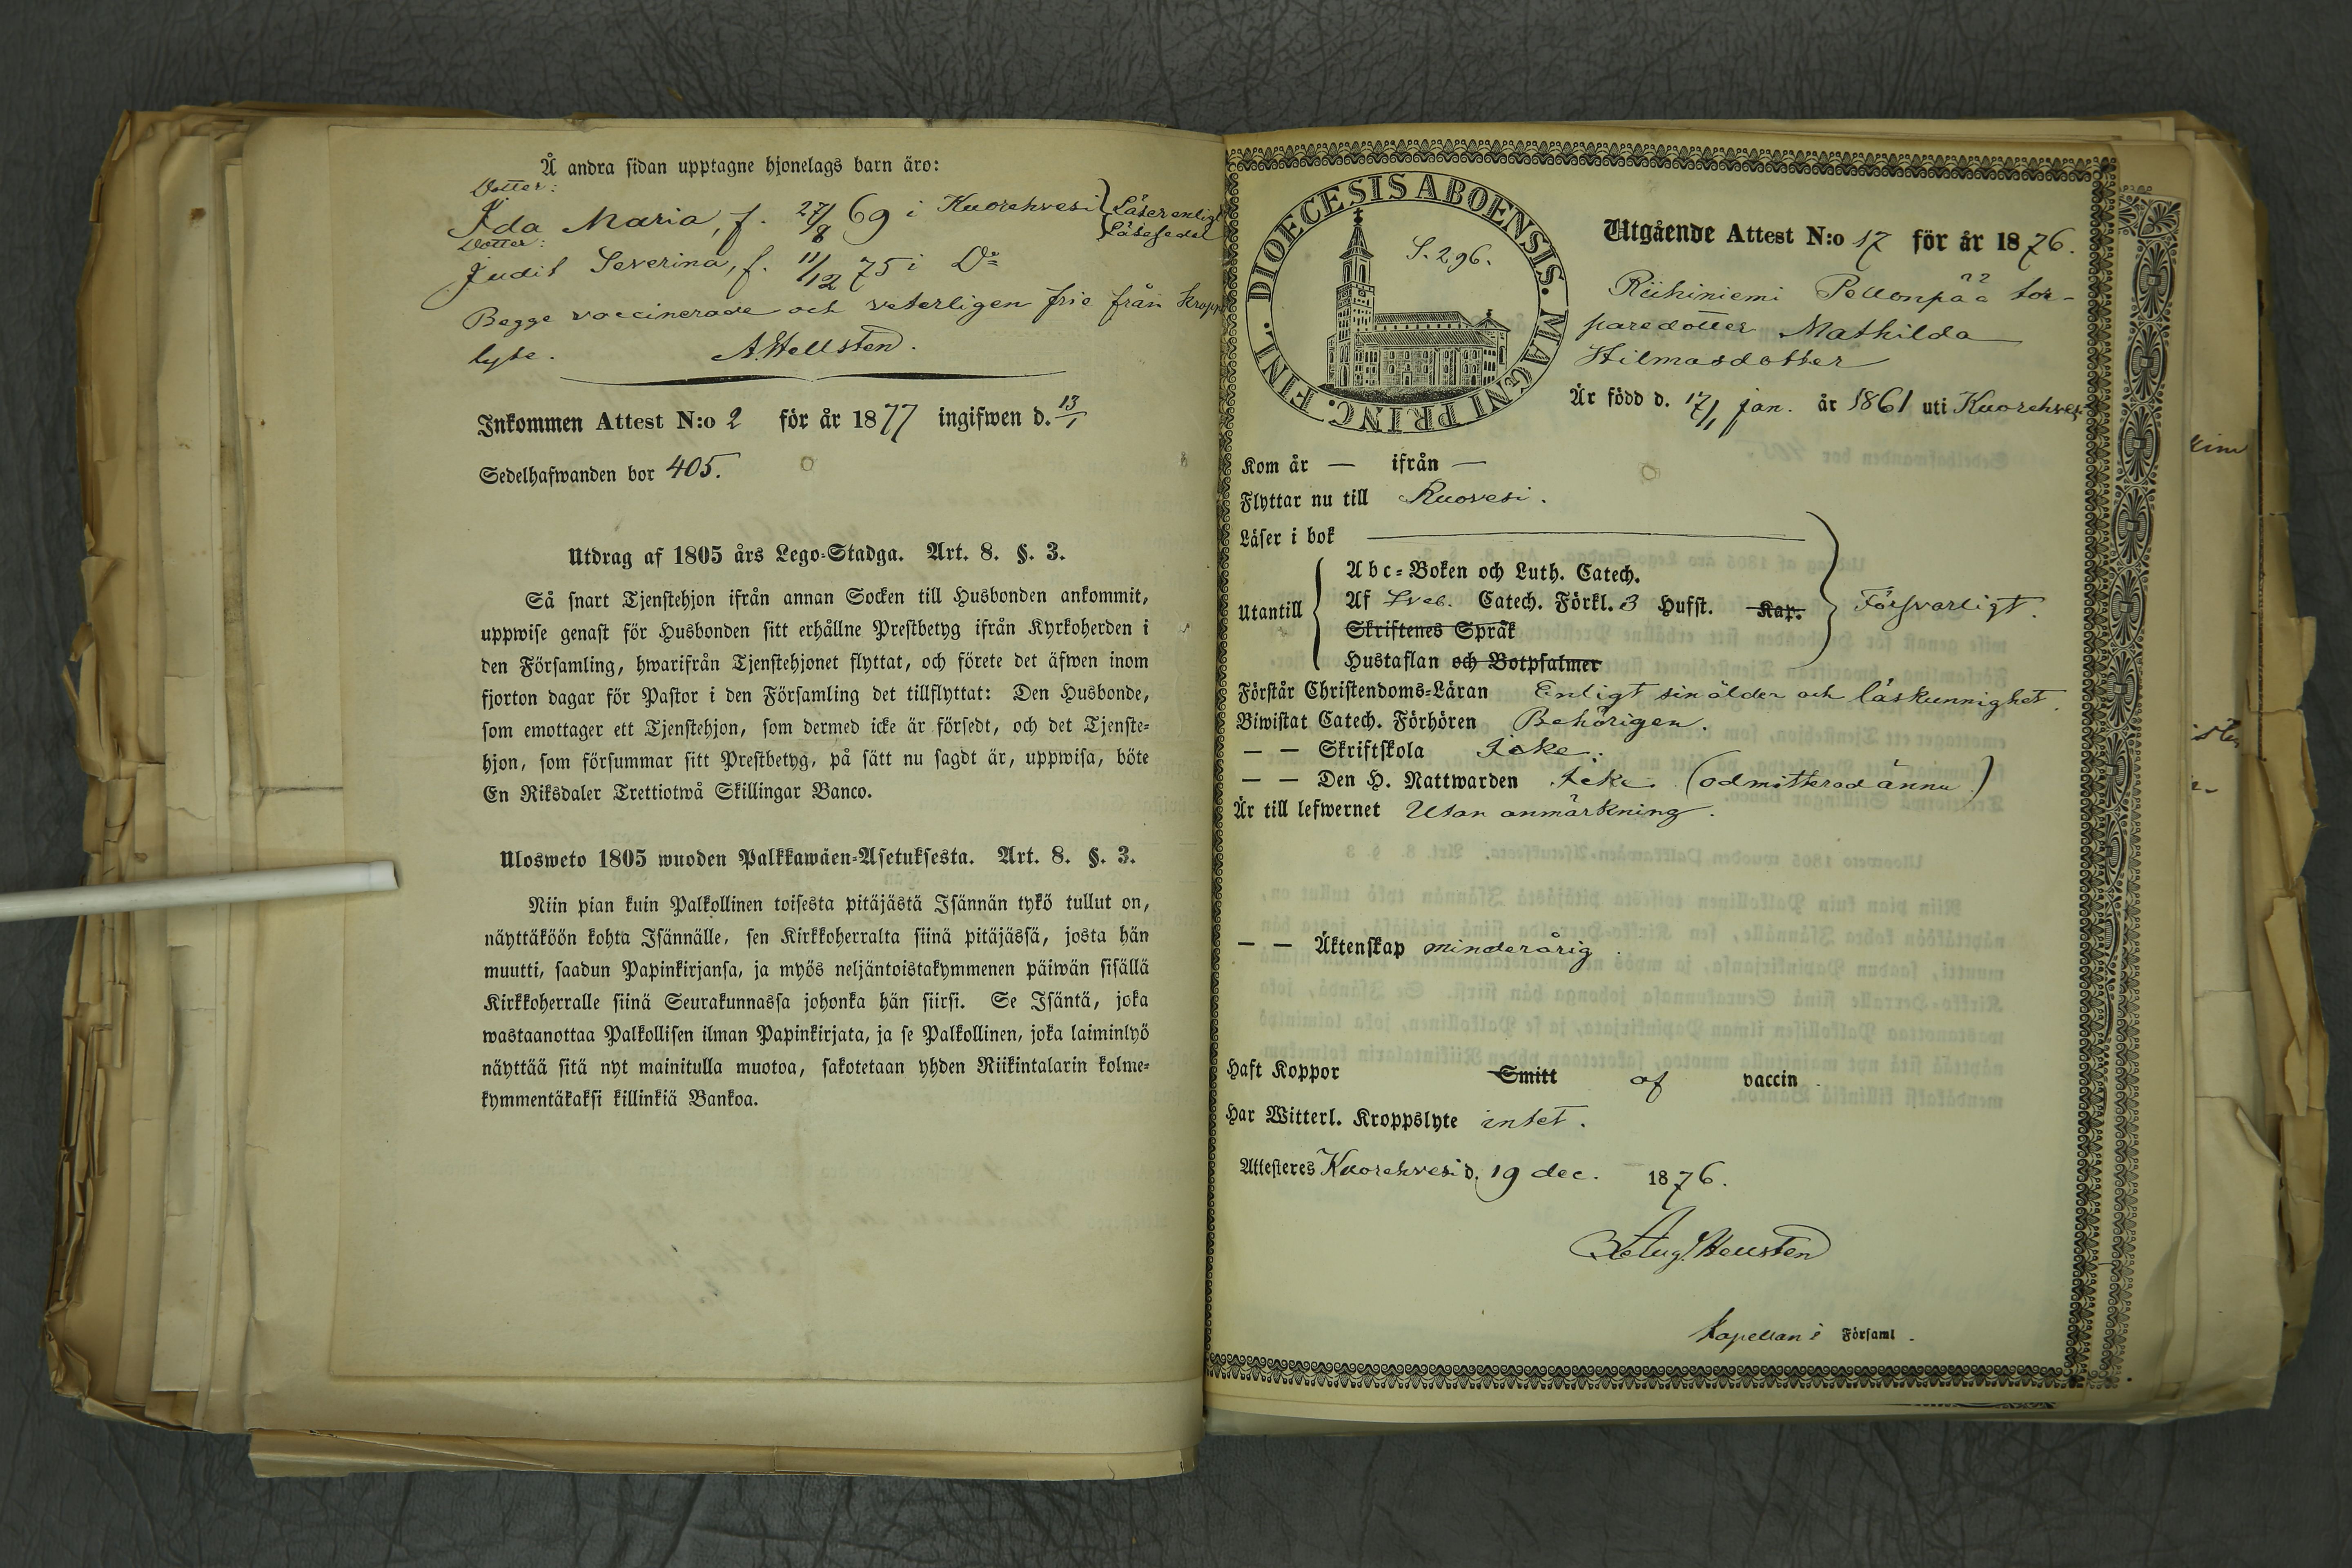 Å andra sidan upptagne hjonelags barn äro:
Dotter:
Ida Maria, f. 27/8 69 i Kuorehvesi } Läser enligt
Läsesedel
Dotter:
Judit Severina, f. 11/12 75 i Do
Begge vaccinerade och veterligen frie från kropps
lyte. A. Hellsten.
Inkommen Attest N:o 2 för år 1877 ingifwen d. 13/1
Sedelhafwanden bor 405.
Utdrag af 1805 års Lego-Stadga. Art. 8. §. 3.
Så snart Tjenstehjon ifrån annan Socken till Husbonden ankommit,
uppwise genast för Husbonden sitt erhållne Prestbetyg ifrån Kyrkoherden i
den Församling, hwarifrån Tjenstehjonet flyttat, och förete det äfwen inom
fjorton dagar för Pastor i den Församling det tillflyttat: Den Husbonde,
som emottager ett Tjenstehjon, som dermed icke är försedt, och det Tjenste-
hjon, som försummar sitt Prestbetyg, på sätt nu sagdt är, uppwisa, böte
En Riksdaler Trettiotwå Skillingar Banco.
Ulosweto 1805 wuoden Palkkawäen-Asetuksesta. Art. 8. §. 3.
Niin pian kuin Palkollinen toisesta pitäjästä Isännän tykö tullut on,
näyttäköön kohta Isännälle, sen Kirkkoherralta siinä pitäjässä, josta hän
muutti, saadun Papinkirjansa, ja myös neljäntoistakymmenen päiwän sisällä
Kirkkoherralle siinä Seurakunnassa johonka hän siirsi. Se Isäntä, joka
wastaanottaa Palkollisen ilman Papinkirjata, ja se Palkollinen, joka laiminlyö
näyttää sitä nyt mainitulla muotoa, sakotetaan yhden Riikintalarin kolme-
kymmentäkaksi killinkiä Bankoa.
DIOECESIS ABOENSIS. MAGNI PRINC. FINL.
S. 296.
Utgående Attest N:o 17 för år 1876.
Riihiniemi Pellonpää tor-
paredotter Mathilda
Hilmasdotter
Är född d. 17/1 jan. år 1861 uti Kuorehvesi
Kom år — ifrån —
Flyttar nu till Ruovesi.
Läser i bok
Utantill
Abc-Boken och Luth. Catech.
Af Sveb. Catech. Förkl. 3 Hufst. Kap.
Skriftenes Språk
Hustaflan och Botpsalmer
Försvarligt.
Förstår Christendoms-Läran Enligt sin ålder och läskunnighet.
Biwistat Catech. Förhören Behörigen.
— — Skriftskola Icke.
— — Den H. Nattwarden Icke (admitterad ännu)
Är till lefwernet Utan anmärkning.
— — Äktenskap minderårig.
Haft Koppor Smitt af vaccin.
Har Witterl. Kroppslyte intet.
Attesteres Kuorehvesi d. 19 dec. 1876.
Aug. Hellsten
Kapellan i Församl.